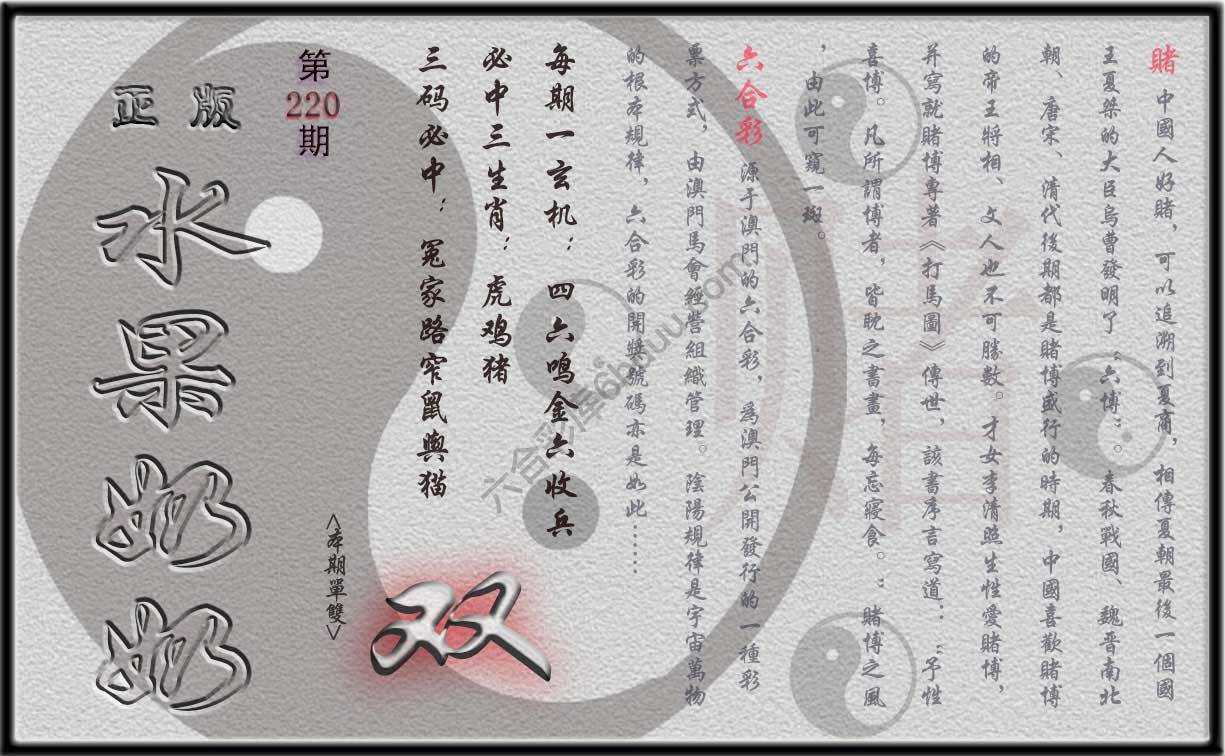 賭 中國人好賭，可以追溯到夏商，相傳夏朝最後一個國
王夏桀的大臣烏曹發明了“六博”。春秋戰國、魏晋南北
朝、唐宋、清代後期都是賭博盛行的時期，中國喜歡賭博
的帝王將相、文人也不可勝數。才女李清照生性愛賭博，
并寫就賭博專著《打馬圖》傳世，該書序言寫道：“予性
喜博。凡所謂博者，皆眈之書畫，每忘寢食。”賭博之風
，由此可窺一斑。
六合彩 源于澳門的六合彩，爲澳門公開發行的一種彩
票方式，由澳門馬會經營組織管理。陰陽規律是宇宙萬物
的根本規律，六合彩的開獎號碼亦是如此……
每期一玄机：四六鸣金六收兵
必中三生肖：虎鸡猪
三码必中：冤家路窄鼠與猫
<本期單雙>
双
第
220
期
正版
水果奶奶
賭
六合彩库6huuu.com